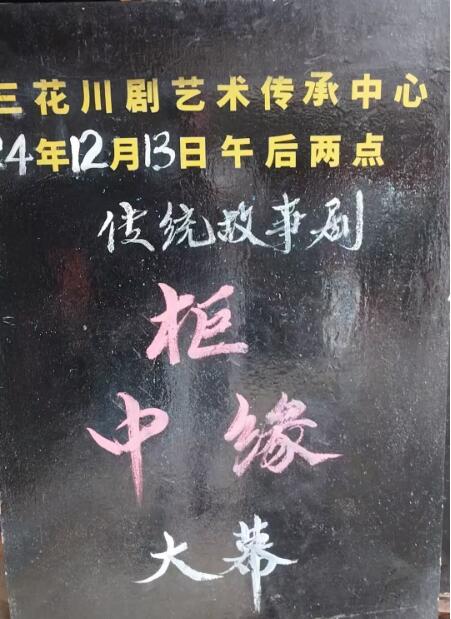 三花川剧艺术传承中心
24年12月13日午后两点
传统故事剧
柜
中缘
大幕